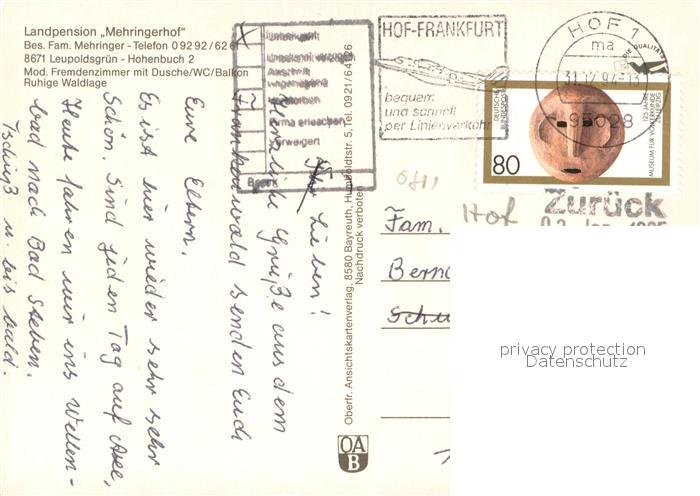 Landpension „Mehringerhof"
Bes. Fam. Mehringer - Telefon 0 92 92/6 26
8671 Leupoldsgrün - Hohenbuch 2
Mod. Fremdenzimmer mit Dusche/WC/Balkon
Ruhige Waldlage
Ihr Lieben!
Herzliche Grüße aus dem
Frankenwald senden Euch
Eure Eltern.
Es ist hier wieder sehr sehr
schön. Sind jeden Tag auf Axe,
Heute fahren wir ins Wellen-
bad nach Bad Steben.
Tschüß u. bis bald.
Oberfr. Ansichtskartenverlag, 8580 Bayreuth, Humboldtstr. 5, Tel. 0921/64126
Nachdruck verboten
OA
B
Unbekannt
Unbekannt verzogen
Anschrift
ungenügend
verstorben
Firma erloschen
verweigert
Bezirk
HOF-FRANKFURT
bequem
und schnell
per Linienverkehr
HOF 1
ma
31.12.94-13
95028
DEUTSCHE
BUNDESPOST
80
125 JAHRE
MUSEUM FÜR VÖLKERKUNDE
ZU LEIPZIG
Hof
Zurück
Fam.
Bern
Schu
privacy protection
Datenschutz